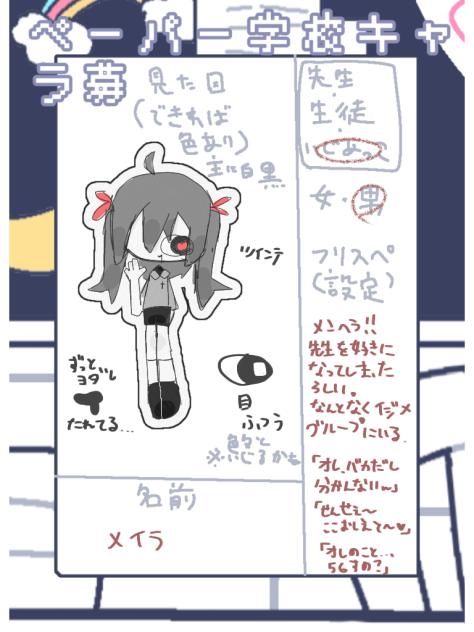 ペーパー学校キャ
ラ募
見た目
(できれば
色あり)
主に白黒
ツインテ
ずっと
ヨダレ
たれてる…
目
ふつう
色々と
※いじるかも
名前
メイラ
先生
・
生徒
・
いじめっ子
女・男
フリスペ
(設定)
メンヘラ!!
先生を好きに
なってしまった
らしい。
なんとなくイジメ
グループにいる
「オレ、バカだし
分かんない〜」
「せんせぇ〜
ここおしえて〜♥」
「オレのこと…
56すの?」